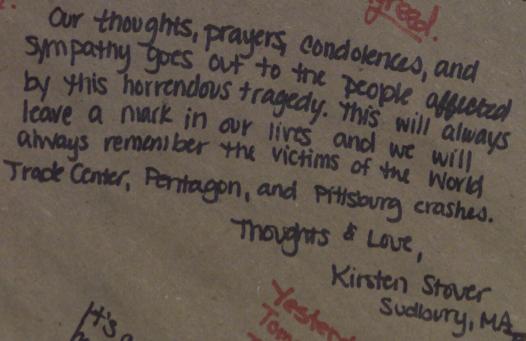 greed.
Our thoughts, prayers, condolences, and
sympathy goes out to the people affected
by this horrendous tragedy. This will always
leave a mark in our lives and we will
always remember the victims of the World
Trade Center, Pentagon, and Pittsburg crashes.
Thoughts & Love,
Kirsten Stover
Sudbury, MA
It's